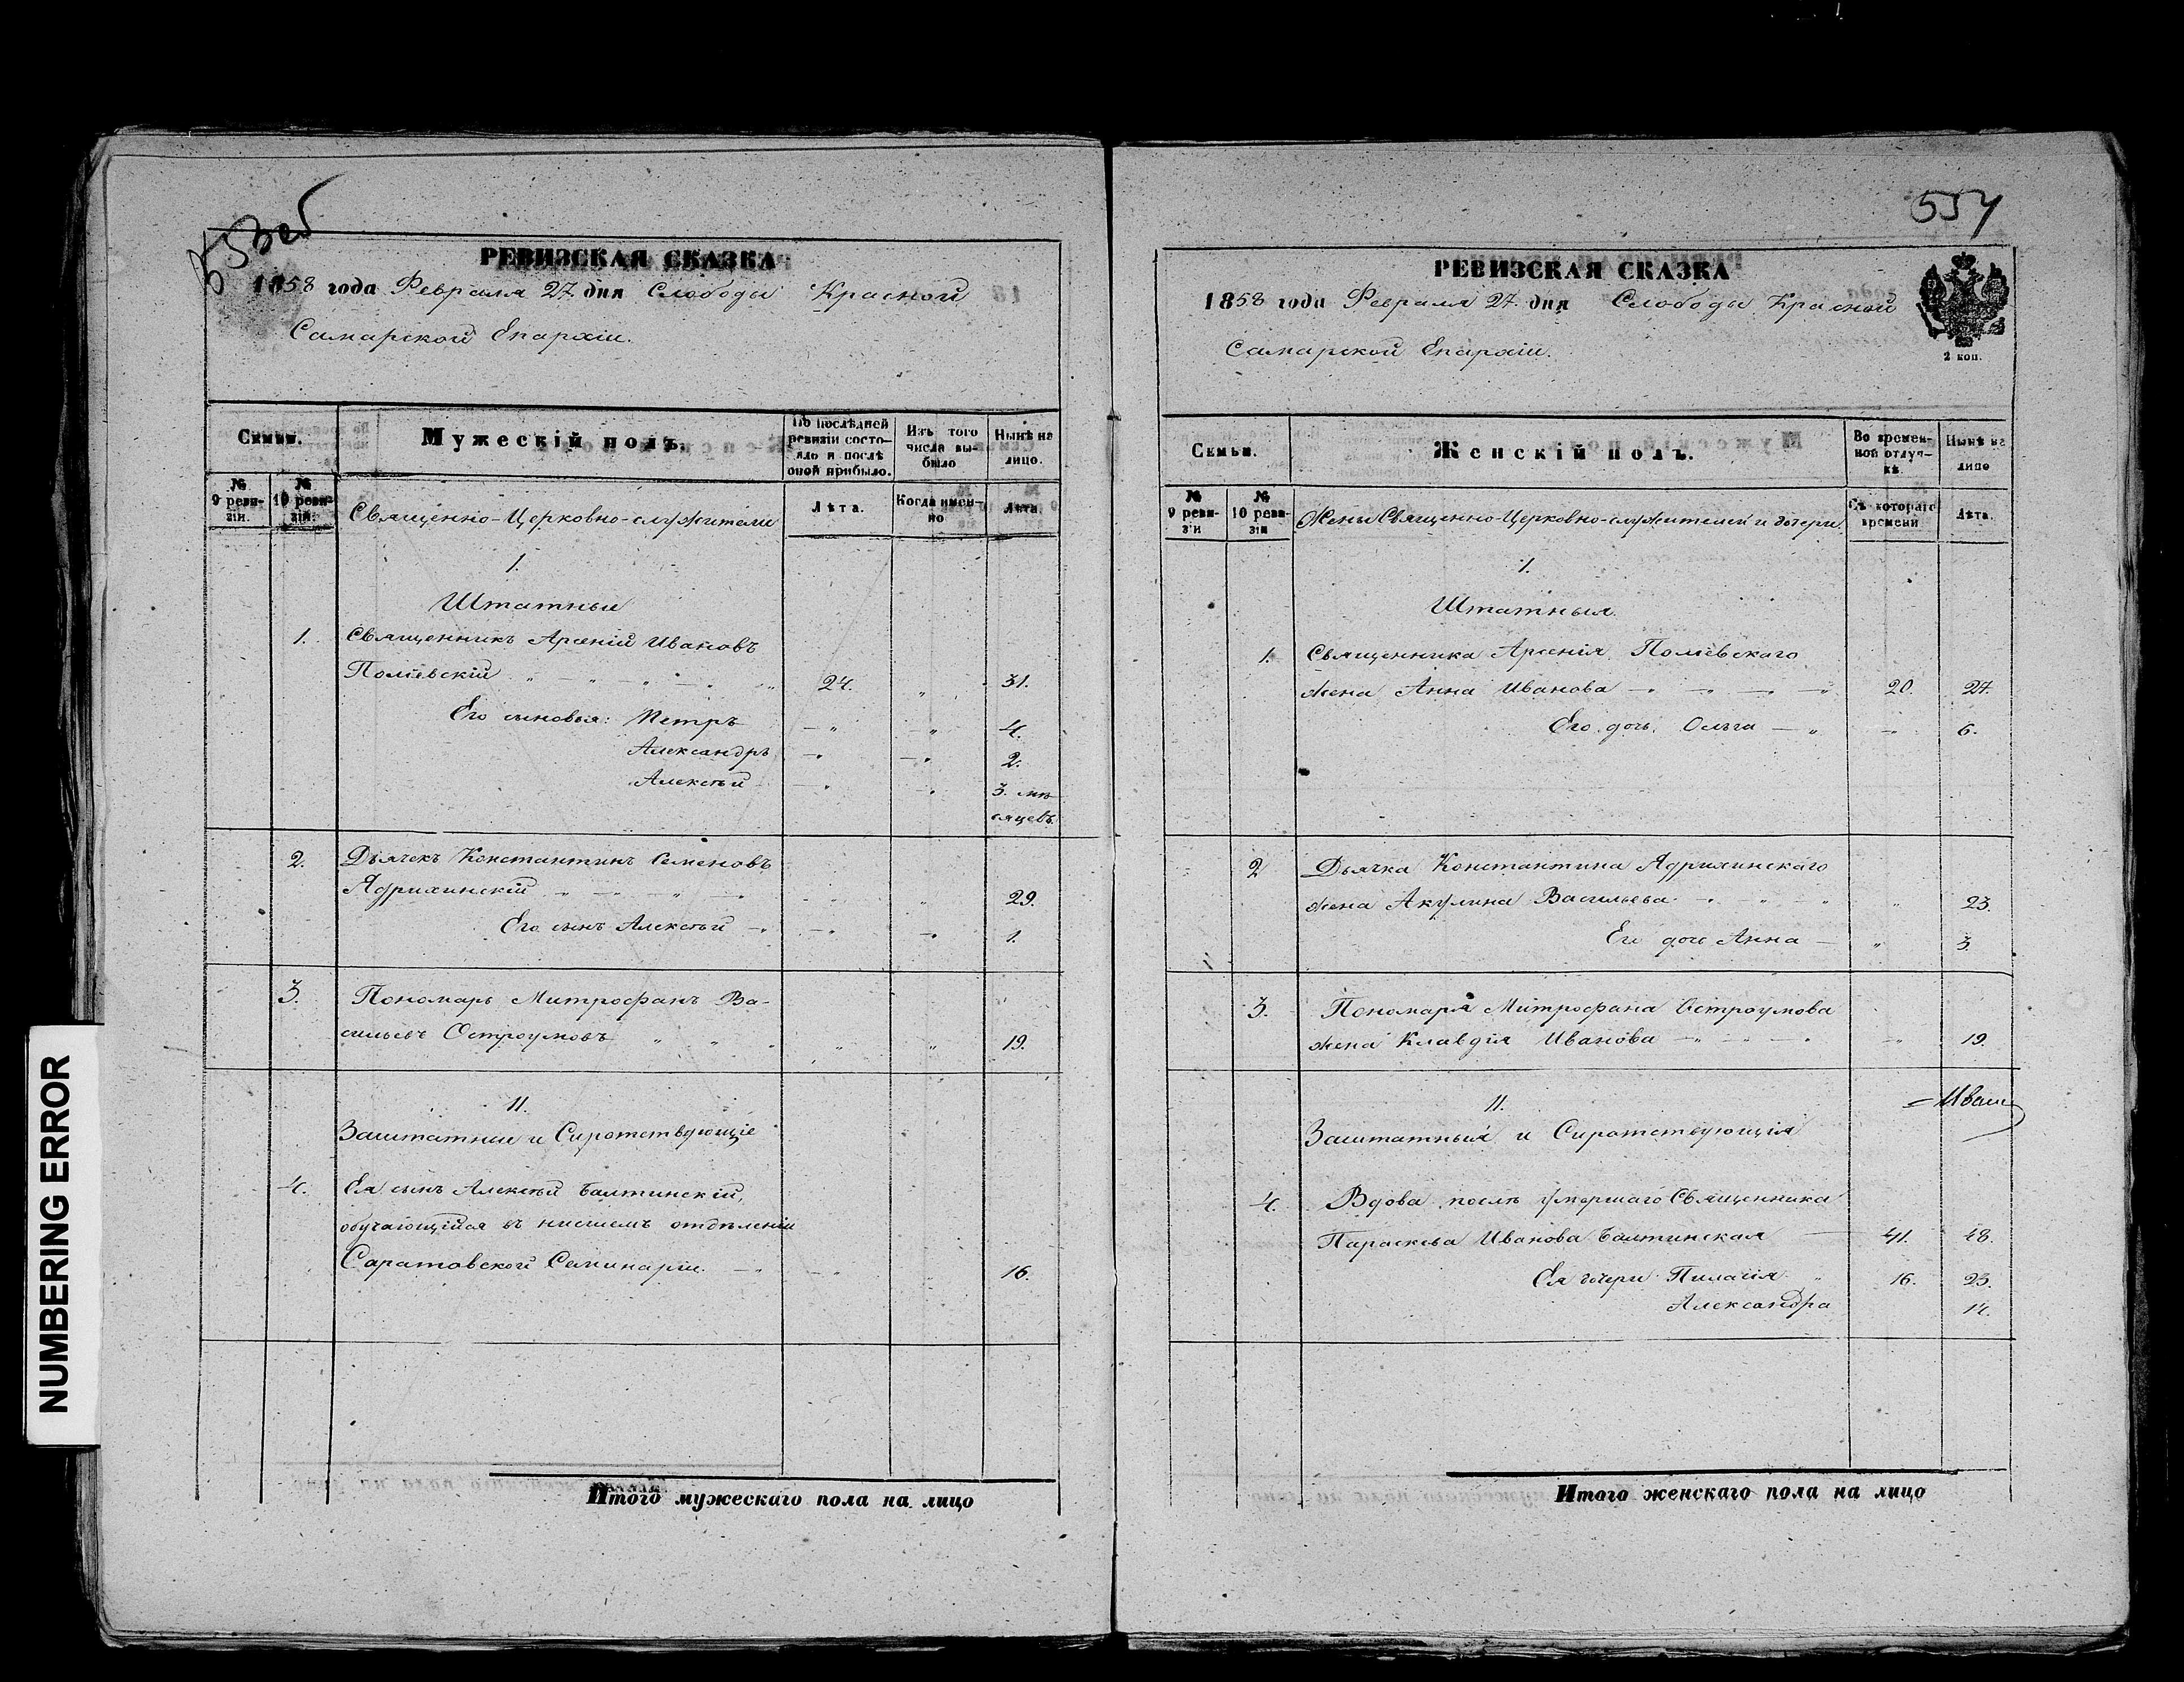 553об
РЕВИЗСКАЯ СКАЗКА
1858 года Февраля 27 дня Слободы Красной
Самарской Епархіи.
Семьи.
Мужескій полъ.
По послѣдней ревизіи состояло и послѣ оной прибыло.
Изъ того числа выбыло
Нынѣ на лицо.
№ 9 ревизіи.
№ 10 ревизіи.
Священно-Церковно-служители
Лѣта.
Когда именно
Лѣта.
1.
Штатные
1. Священникъ Арсеній Ивановъ
24. 31.
Его сыновья: Петръ 4.
Александръ 2.
Алексѣй 3. мѣ-
сяцевъ.
2. Дьячекъ Константинъ Семеновъ
Ядринскій 29.
Его сынъ Алексѣй 1.
3. Пономарь Митрофанъ Ва-
сильевъ Остроумовъ 19.
11.
Заштатные и Сиротствующіе
4. Ея сынъ Алексѣй Балтинскій,
обучающійся въ низшемъ отдѣленіи
Саратовской Семинаріи. 16.
Итого мужескаго пола на лицо
554
РЕВИЗСКАЯ СКАЗКА
1858 года Февраля 27. дня Слободы Красной
Самарской Епархіи.
2 коп.
Семьи.
Женскій полъ.
Во временной отлучкѣ.
Нынѣ на лицо
№ 9 ревизіи
№ 10 ревизіи
Жены Священно-Церковно-служителей и дочери.
Съ котораго времени
Лѣта.
1.
Штатныя.
1. Священника Арсенія
жена Анна Иванова 20. 27.
Его дочь Ольга 6.
2 Дьячка Константина
жена Акулина Васильева 23.
Его дочь Анна 3.
3. Пономаря Митрофана Остроумова
жена Клавдія Иванова 19.
11.
Заштатныя и Сиротствующія
4. Вдова послѣ умершаго Священника
Параскева Иванова Балтинская 41. 48.
Ея дочери Пилагія 16. 23.
Александра 14.
Итого женскаго пола на лицо
NUMBERING ERROR